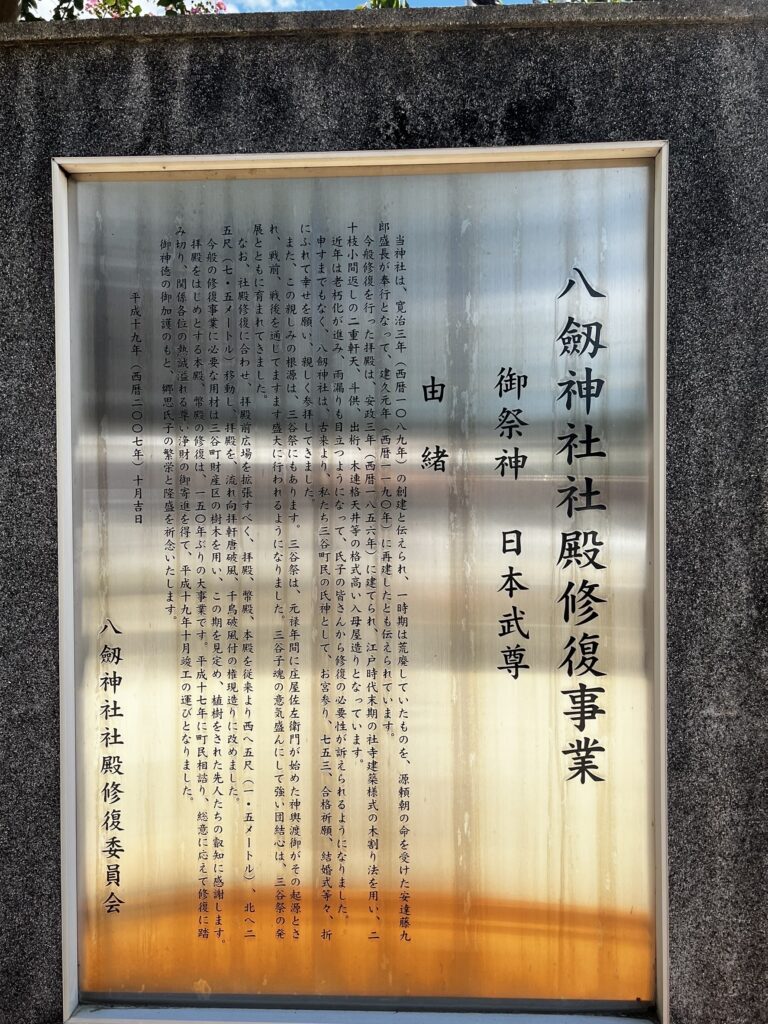 八劔神社社殿修復事業
御祭神　日本武尊
由緒
当神社は、寛治三年（西暦一〇八九年）の創建と伝えられ、一時期は荒廃していたものを、源頼朝の命を受けた安達藤九
郎盛長が奉行となって、建久元年（西暦一一九〇年）に再建したとも伝えられています。
今般修復を行った拝殿は、安政三年（西暦一八五六年）に建てられ、江戸時代末期の社寺建築様式の木割り法を用い、二
十枝小間返しの二重軒天、斗供、出桁、木連格天井等の格式高い入母屋造りとなっています。
近年は老朽化が進み、雨漏りも目立つようになって、氏子の皆さんから修復の必要性が訴えられるようになりました。
申すまでもなく、八劔神社は、古来より、私たち三谷町民の氏神として、お宮参り、七五三、合格祈願、結婚式等々、折
にふれて幸せを願い、親しく参拝してきました。
また、この親しみの根源は、三谷祭にもあります。三谷祭は、元禄年間に庄屋佐左衛門が始めた神輿渡御がその起源とさ
れ、戦前、戦後を通じてますます盛大に行われるようになりました。三谷子魂の意気盛んにして強い団結心は、三谷祭の発
展とともに育まれてきました。
なお、社殿修復に合わせ、拝殿前広場を拡張すべく、拝殿、幣殿、本殿を従来より西へ五尺（一・五メートル）、北へ二
五尺（七・五メートル）移動し、拝殿を、流れ向拝軒唐破風、千鳥破風付の権現造りに改めました。
今般の修復事業に必要な用材は三谷町財産区の樹木を用い、この期を見定め、植樹をされた先人たちの叡知に感謝します。
拝殿をはじめとする本殿、幣殿の修復は、一五〇年ぶりの大事業です。平成十七年に町民相諮り、総意に応えて修復に踏
み切り、関係各位の熱誠溢れる尊い浄財の御寄進を得て、平成十九年十月竣工の運びとなりました。
御神徳の御加護のもと、郷思氏子の繁栄と隆盛を祈念いたします。
平成十九年（西暦二〇〇七年）十月吉日
八劔神社社殿修復委員会